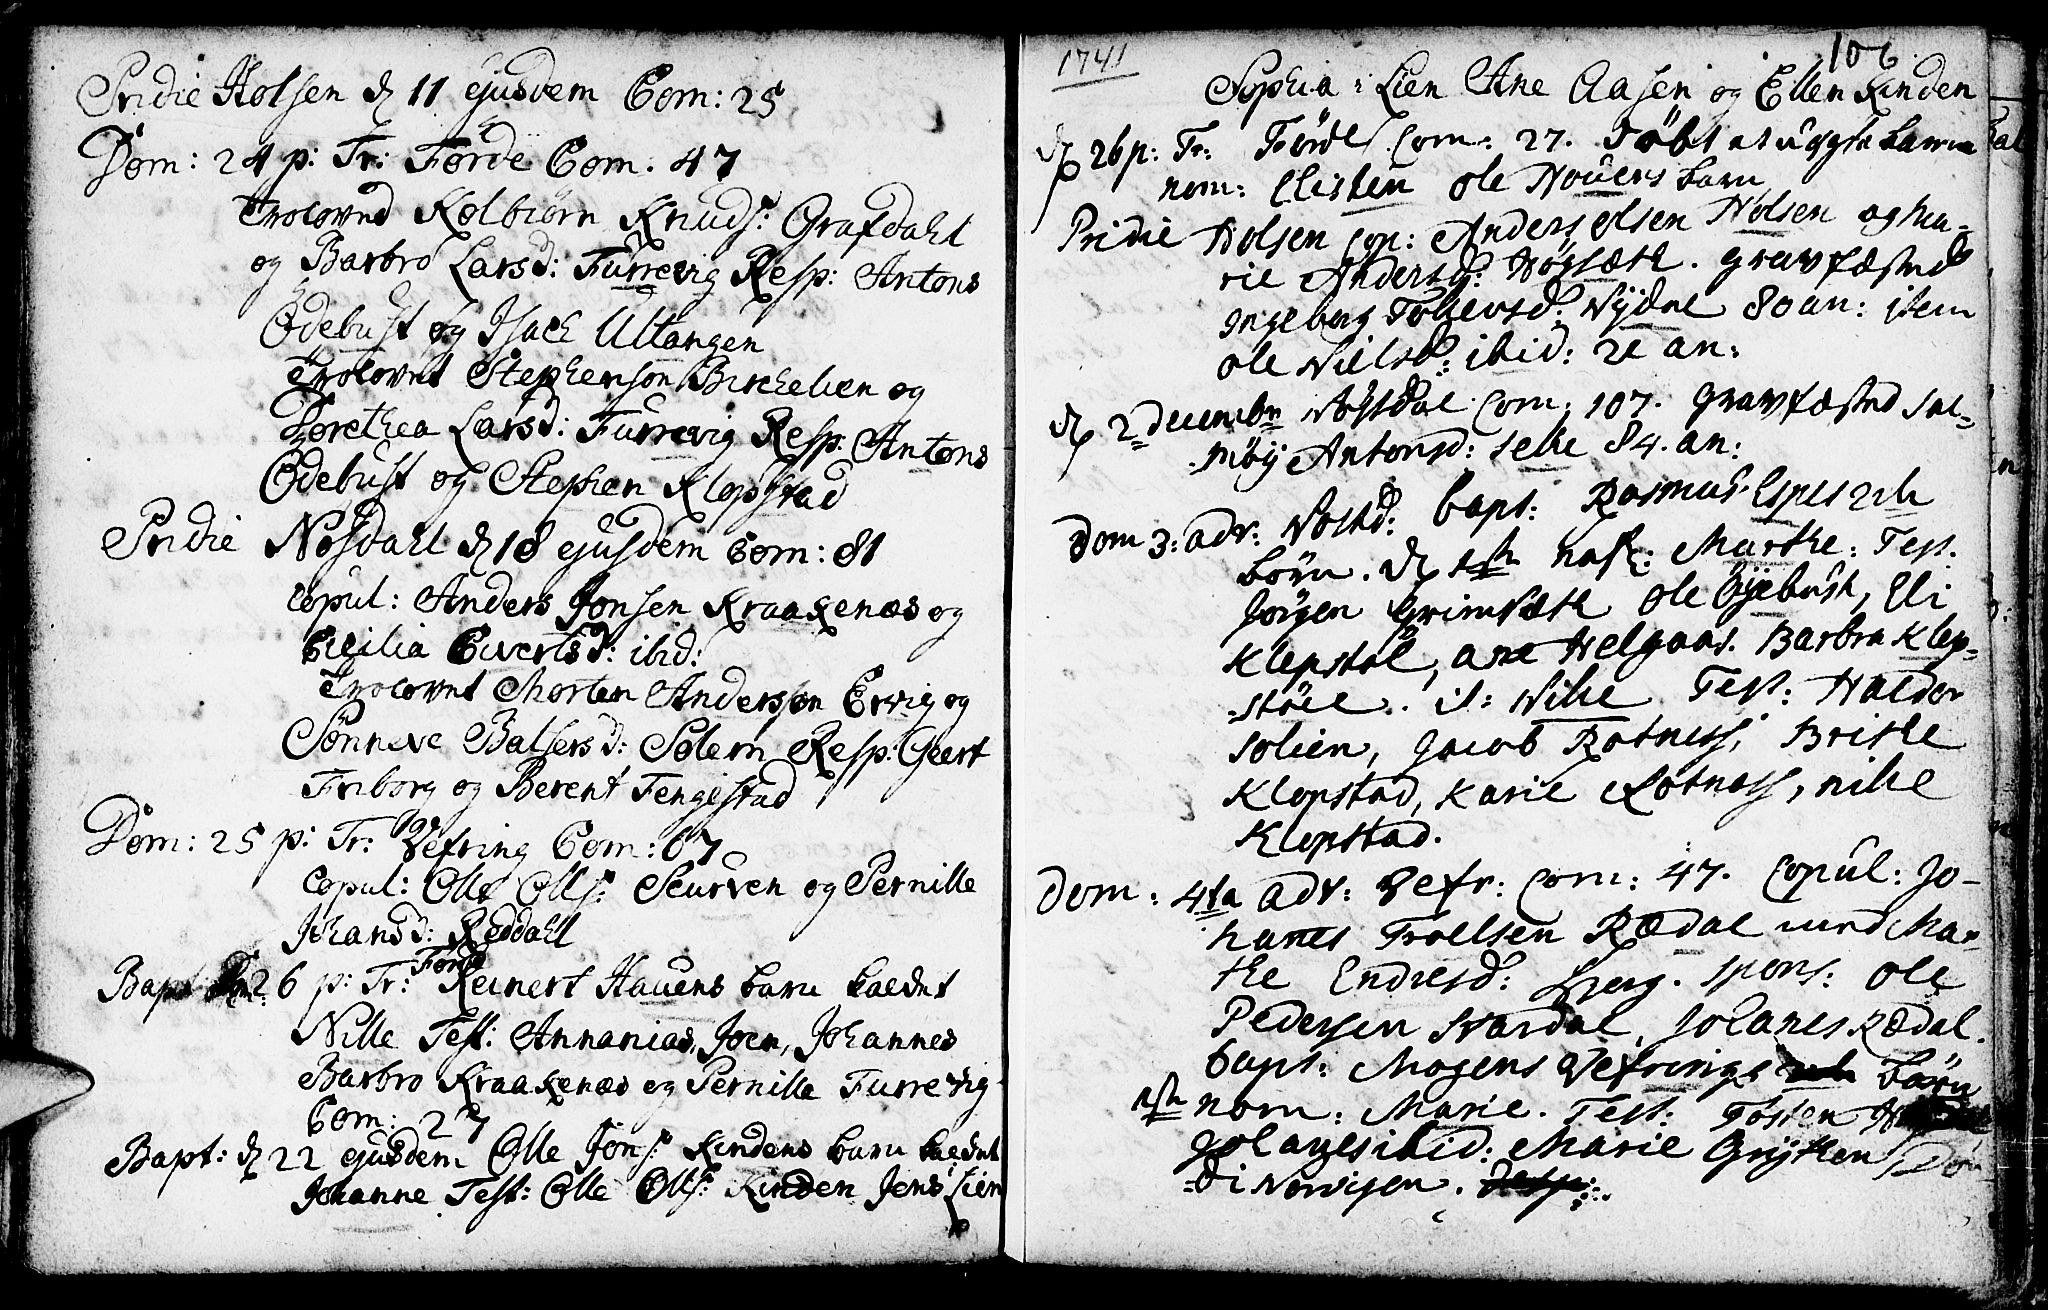 Pridie Holsen d 11 ejusdem Com: 25
Dom: 24 p: Tr: Førde Com. 47
Trolovud Kolbiørn Knuds: Grafdahl
og Barbro Larsd: Furrevig Resp: Antons
Ødebust og Isach Ultangen
Trolovnt Stephenson Birchelien og
Dorethea Larsd: Furrevig Resp: Antons
Ødebust og Stephen Klopstad
Pridie Nosdahl d 18 ejusdem Com: 81
Copul: Anders Jonsen Kraakenæs og
Cicilia Evertsd: ibid:
Trolovnt Morten Andersson Ervig og
Sønneve Balsersd: Solem Resp: Geert
Friborg og Berent Tengestad
Dom: 25 p: Tr: Vefring Com: 67
Copul: Olle Olls: Scurven og Pernille
Johansd: Reddahl
Førde
Bapt 26 p: Tr: Reinert Hauens barn kaldet
Nille Test: Annanias, Joen, Johannes
Barbro Kraakenæs og Pernille Furrevig
Com: 27
Bapt: d 22 ejusdem Olle Jons: Kindens barn kaldet
Johanne Test: Olle Olls: Kinden Jens Lien
1741
106
Sophia Lien Ane Aasen og Ellen Kinden
d 26 p: Tr: Førde Com: 27. Døbt et barn
nom: Elisken ole Houens barn
Pridie Holsen Cop: Anders olsen Holsen og Ma-
rie Andersd: Høgsæth. gravfæsted
Ingeborg Tollevsd: Nydal 80 an: item
ole Nielss: ibid: 2 an:
d 2 decembr Nostdal Com: 107. gravfæsted Sal-
møy Antonsd: Sele 84. an:
Dom 3: adv: Nostd: bapt: Rasmus Espesets
børn. d 1ste nafl: Marthe: Test.
Jørgen Grimsæth ole Øyebust, Eli
Klepstøl, ane Helgaas. Barbra Klep-
støel. it: Nille Test: Haldor
solien, Jacob Rotness, Brithe
Klopstad, Karie Rotness, nille
Klopstad.
Dom: 4ta adv: Vefr: Com: 47. Copul: Jo-
hanes Troelsen Rædal med Mar-
the Endresd: Berg. spons: ole
Pedersen Hardal, Johanes Rædal.
bapt: Mogens Vefrings barn
nom: Marie. Test: Tosten
Johanes ibid: Marie Gryten